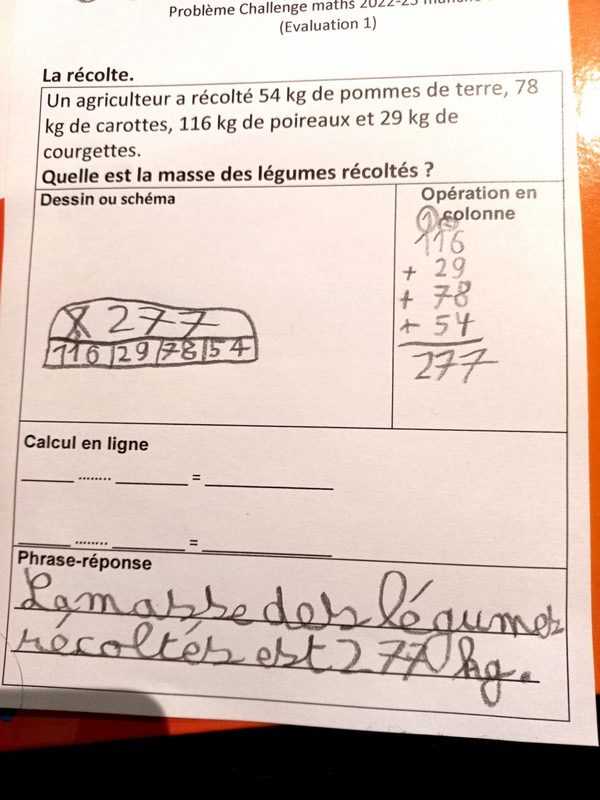 Problème Challenge maths 2022-23
(Evaluation 1)
La récolte.
Un agriculteur a récolté 54 kg de pommes de terre, 78
kg de carottes, 116 kg de poireaux et 29 kg de
courgettes.
Quelle est la masse des légumes récoltés ?
Dessin ou schéma
X 277
116 |29|78|54
Opération en
colonne
116
+ 29
+ 78
+ 54
277
Calcul en ligne
____ ........ ____ = ____
____ ........ ____ = ____
Phrase-réponse
La masse des légumes
récoltés est 277 kg.